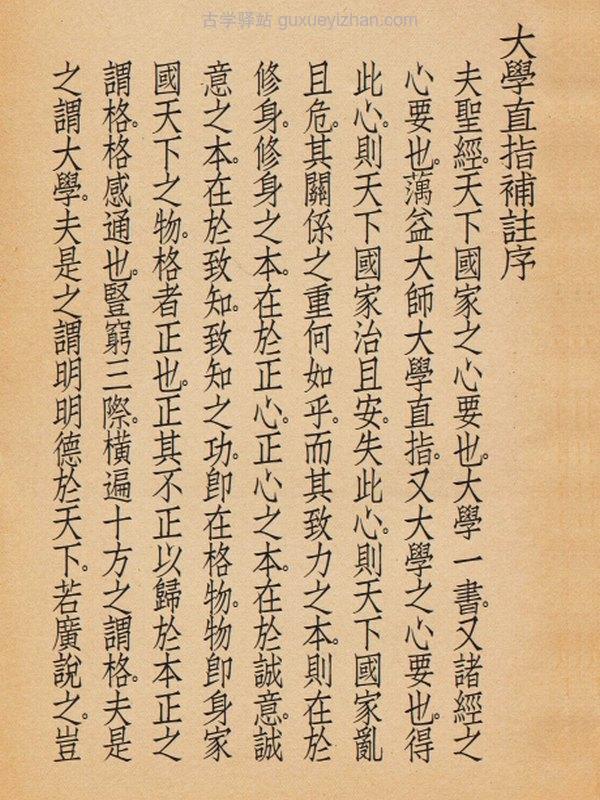 古学驿站 guxueyizhan.com
大學直指補註序
夫聖經。天下國家之心要也。大學一書。又諸經之
心要也。蕅益大師大學直指。又大學之心要也。得
此心。則天下國家治且安。失此心。則天下國家亂
且危。其關係之重何如乎。而其致力之本。則在於
修身。修身之本。在於正心。正心之本。在於誠意。誠
意之本。在於致知。致知之功。卽在格物。物卽身家
國天下之物。格者正也。正其不正以歸於本正之
謂格。格感通也。豎窮三際。橫遍十方之謂格。夫是
之謂大學。夫是之謂明明德於天下。若廣說之。豈